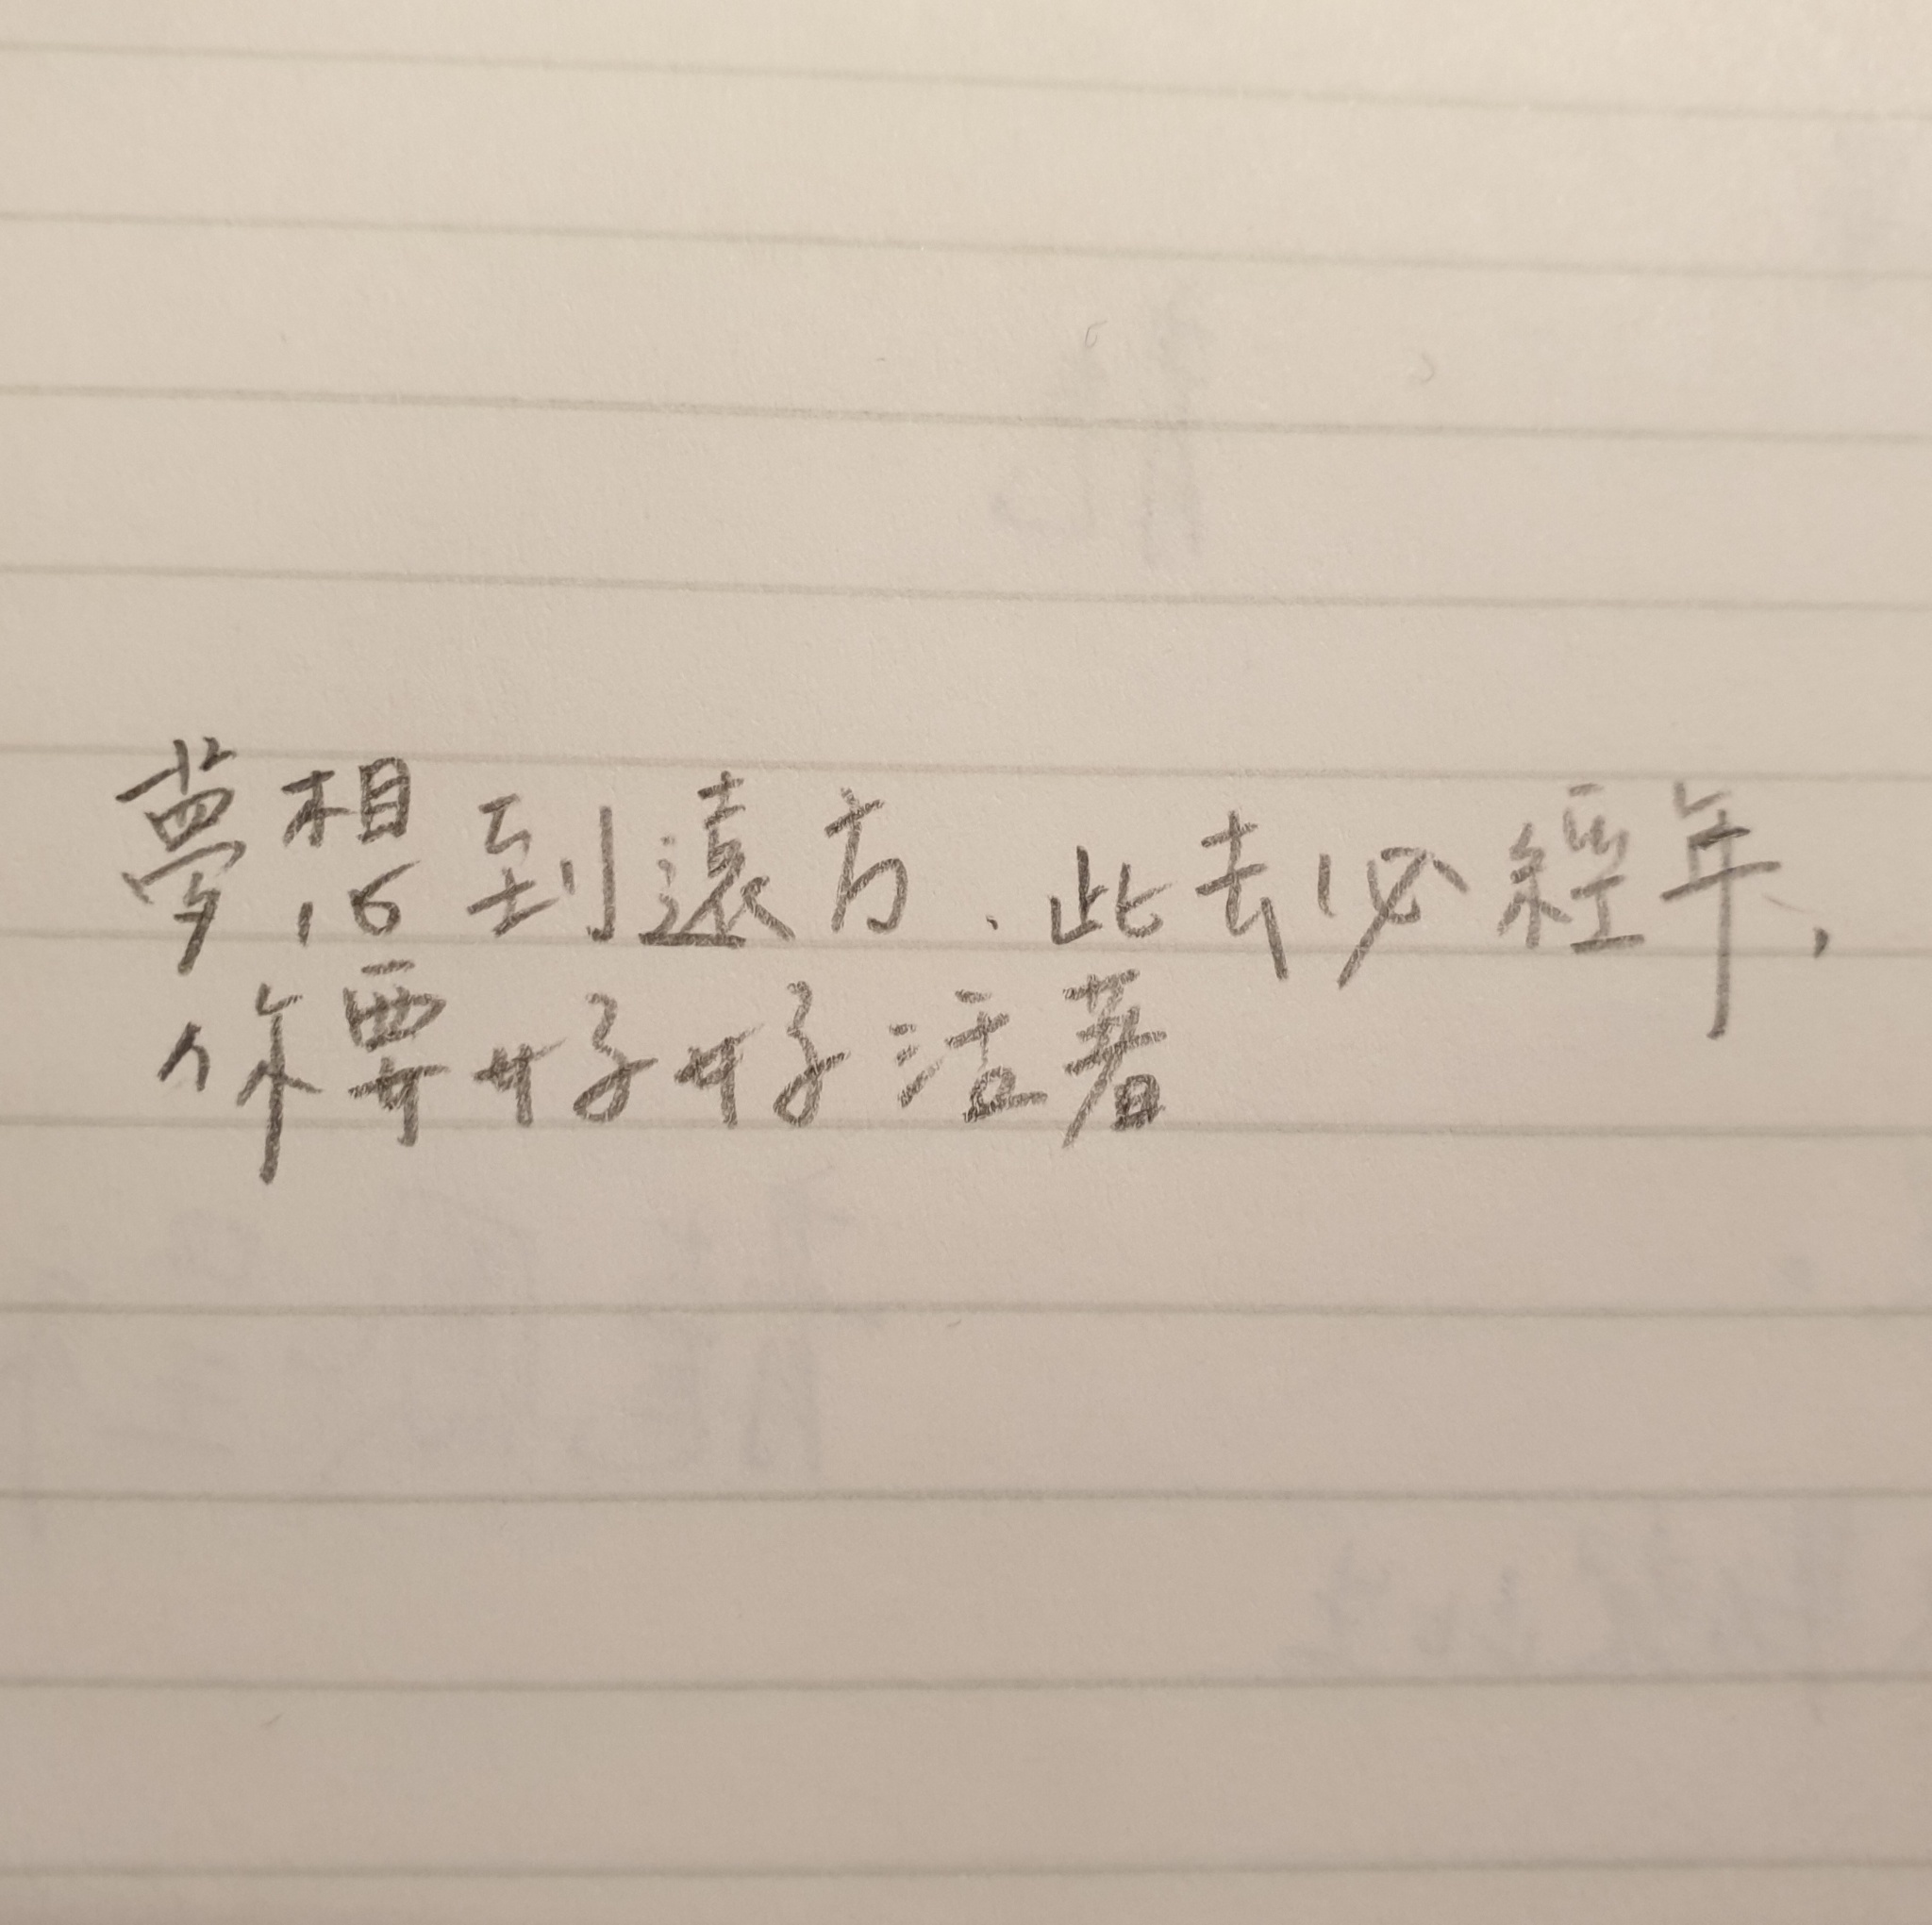 夢想到遠方、此去必經年，
你要好好活著